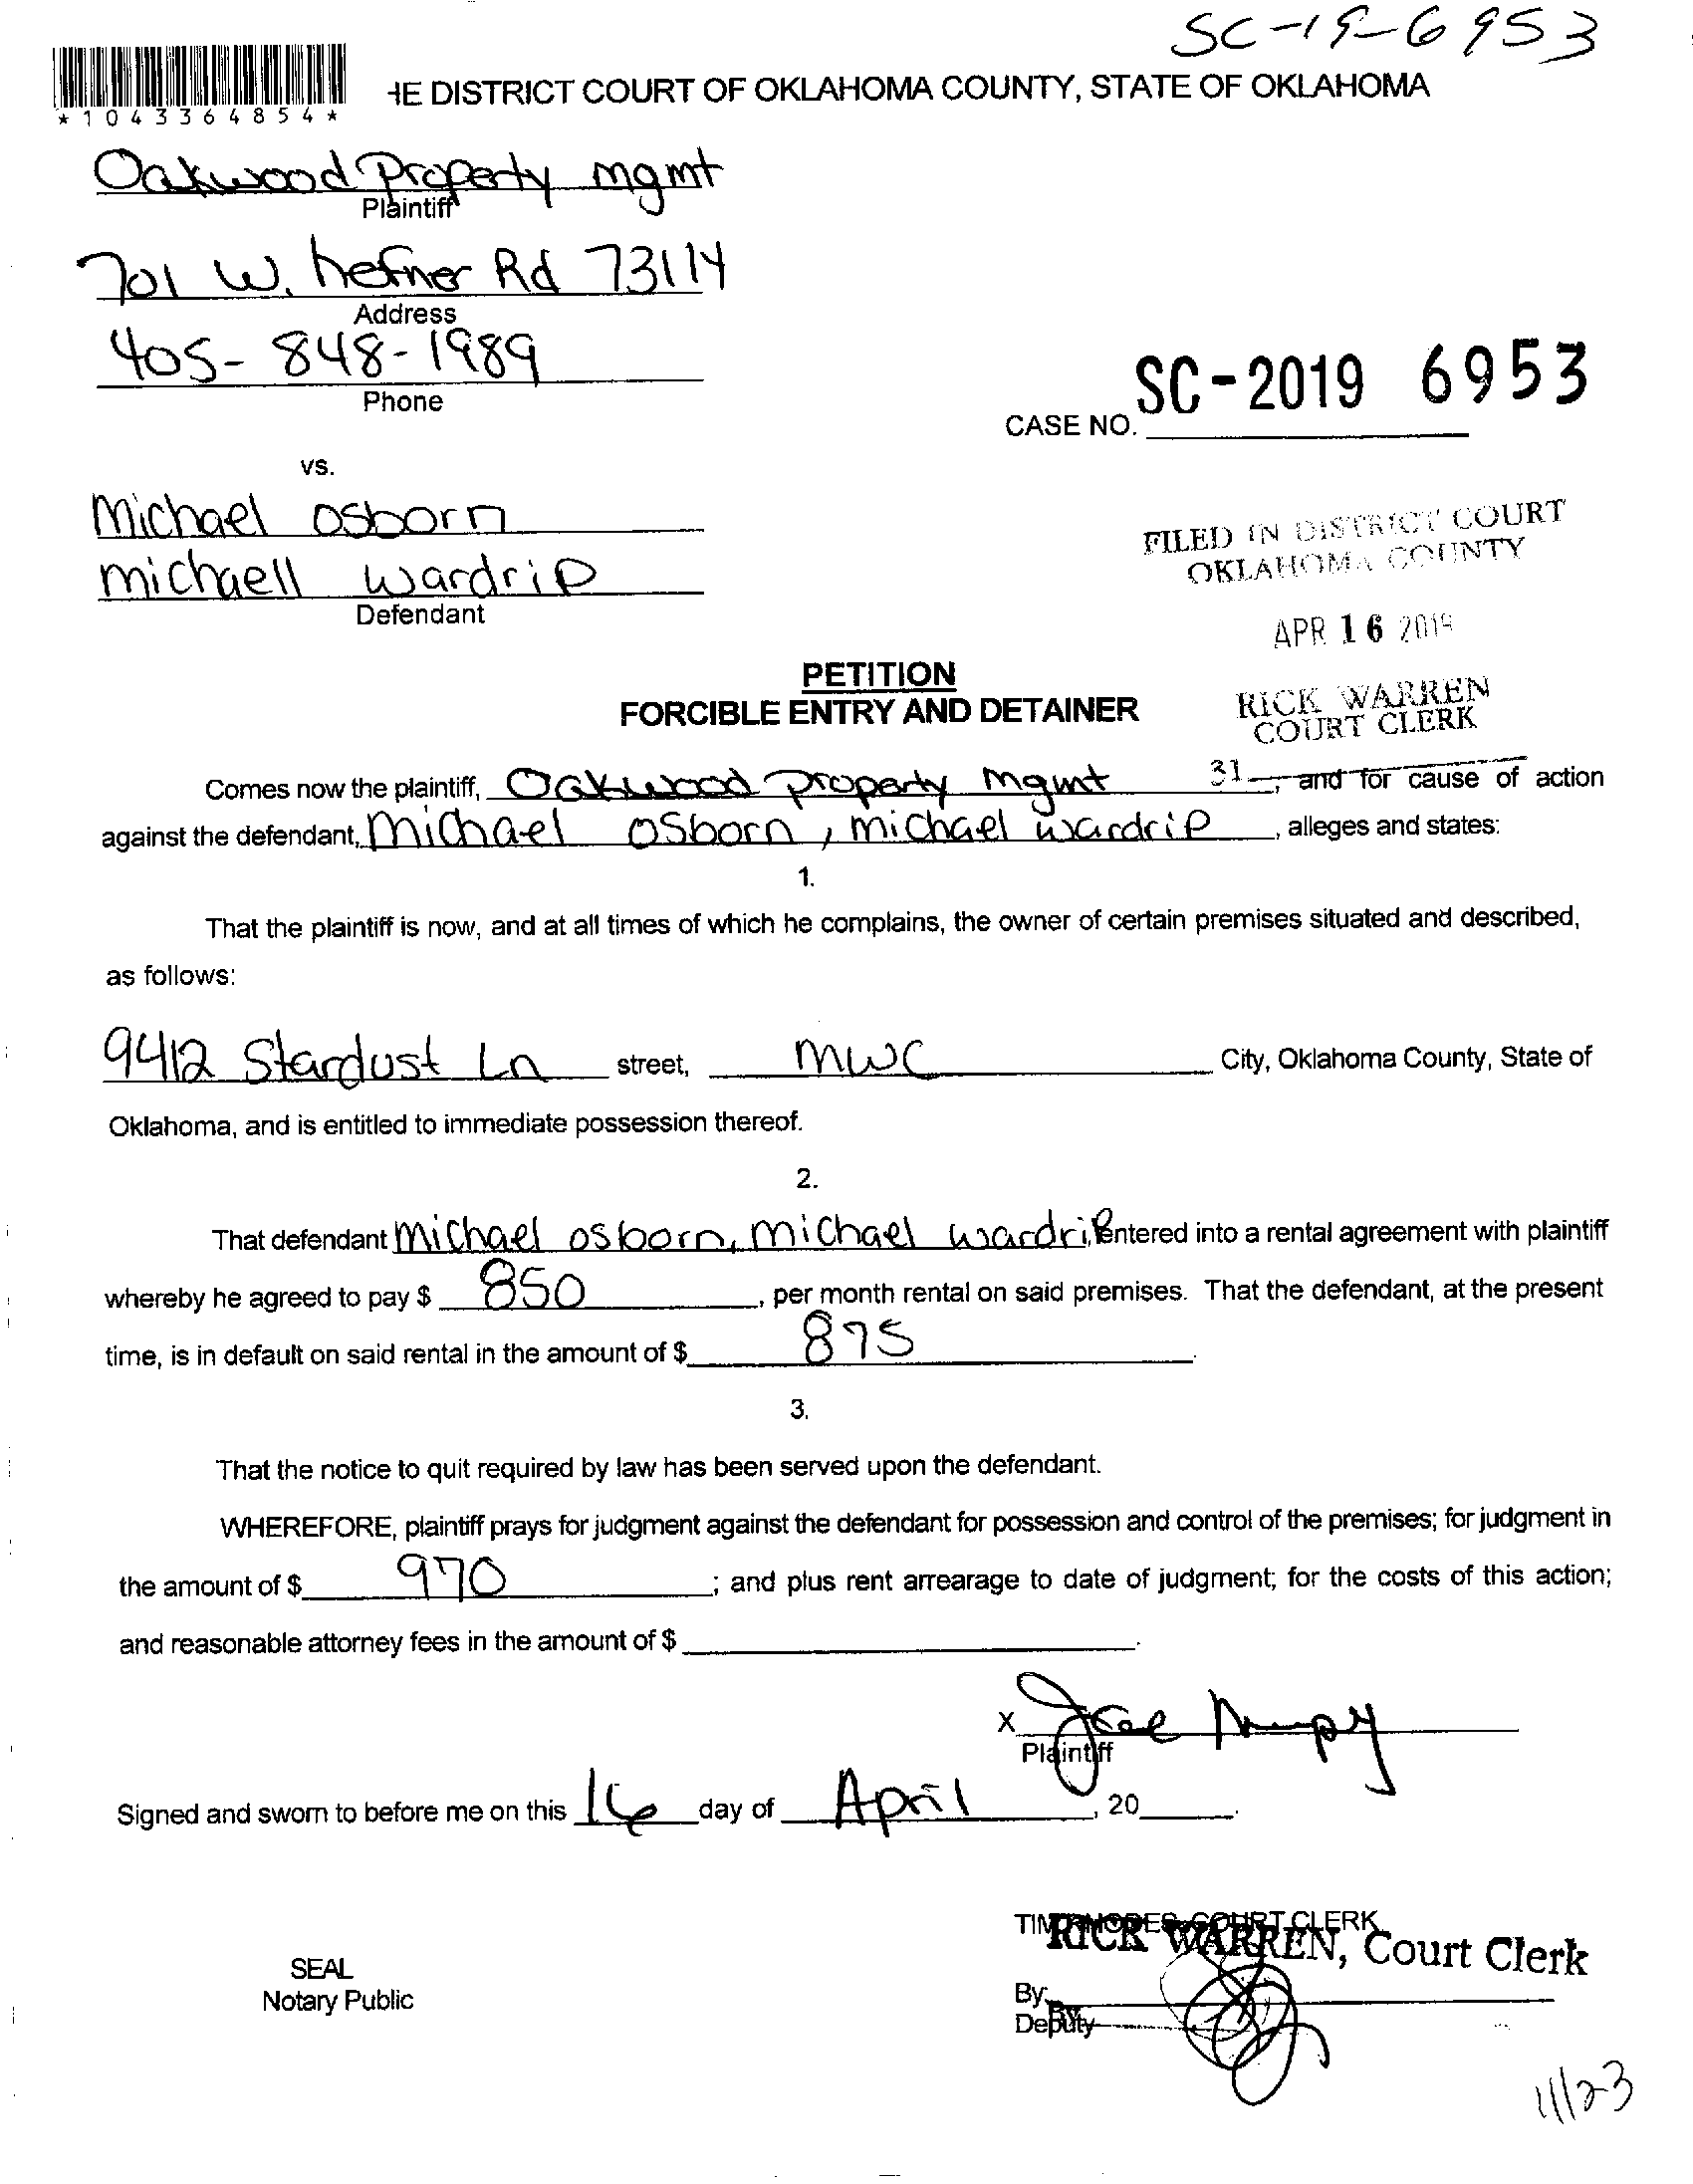 SC-19-6953
*1043364854*
HE DISTRICT COURT OF OKLAHOMA COUNTY, STATE OF OKLAHOMA
Oakwood Property mgmt
Plaintiff
701 W. hefner Rd 73114
Address
405-848-1989
Phone
CASE NO. SC-2019 6953
vs.
Michael osborn
michaell wardrip
Defendant
FILED IN DISTRICT COURT
OKLAHOMA COUNTY
APR 16 2019
RICK WARREN
COURT CLERK
PETITION
FORCIBLE ENTRY AND DETAINER
31
Comes now the plaintiff, Oakwood property mgmt, and for cause of action
against the defendant, Michael osborn, michael wardrip, alleges and states:
1.
That the plaintiff is now, and at all times of which he complains, the owner of certain premises situated and described,
as follows:
9412 Stardust Ln street, MWC City, Oklahoma County, State of
Oklahoma, and is entitled to immediate possession thereof.
2.
That defendant Michael osborn, michael wardrip, entered into a rental agreement with plaintiff
whereby he agreed to pay $ 850, per month rental on said premises. That the defendant, at the present
time, is in default on said rental in the amount of $ 875.
3.
That the notice to quit required by law has been served upon the defendant.
WHEREFORE, plaintiff prays for judgment against the defendant for possession and control of the premises; for judgment in
the amount of $ 970; and plus rent arrearage to date of judgment; for the costs of this action;
and reasonable attorney fees in the amount of $ .
X
Plaintiff
Signed and sworn to before me on this 16 day of April, 20 .
TIM RHODES, COURT CLERK
RICK WARREN, Court Clerk
SEAL
Notary Public
By:
By
Deputy
11/23